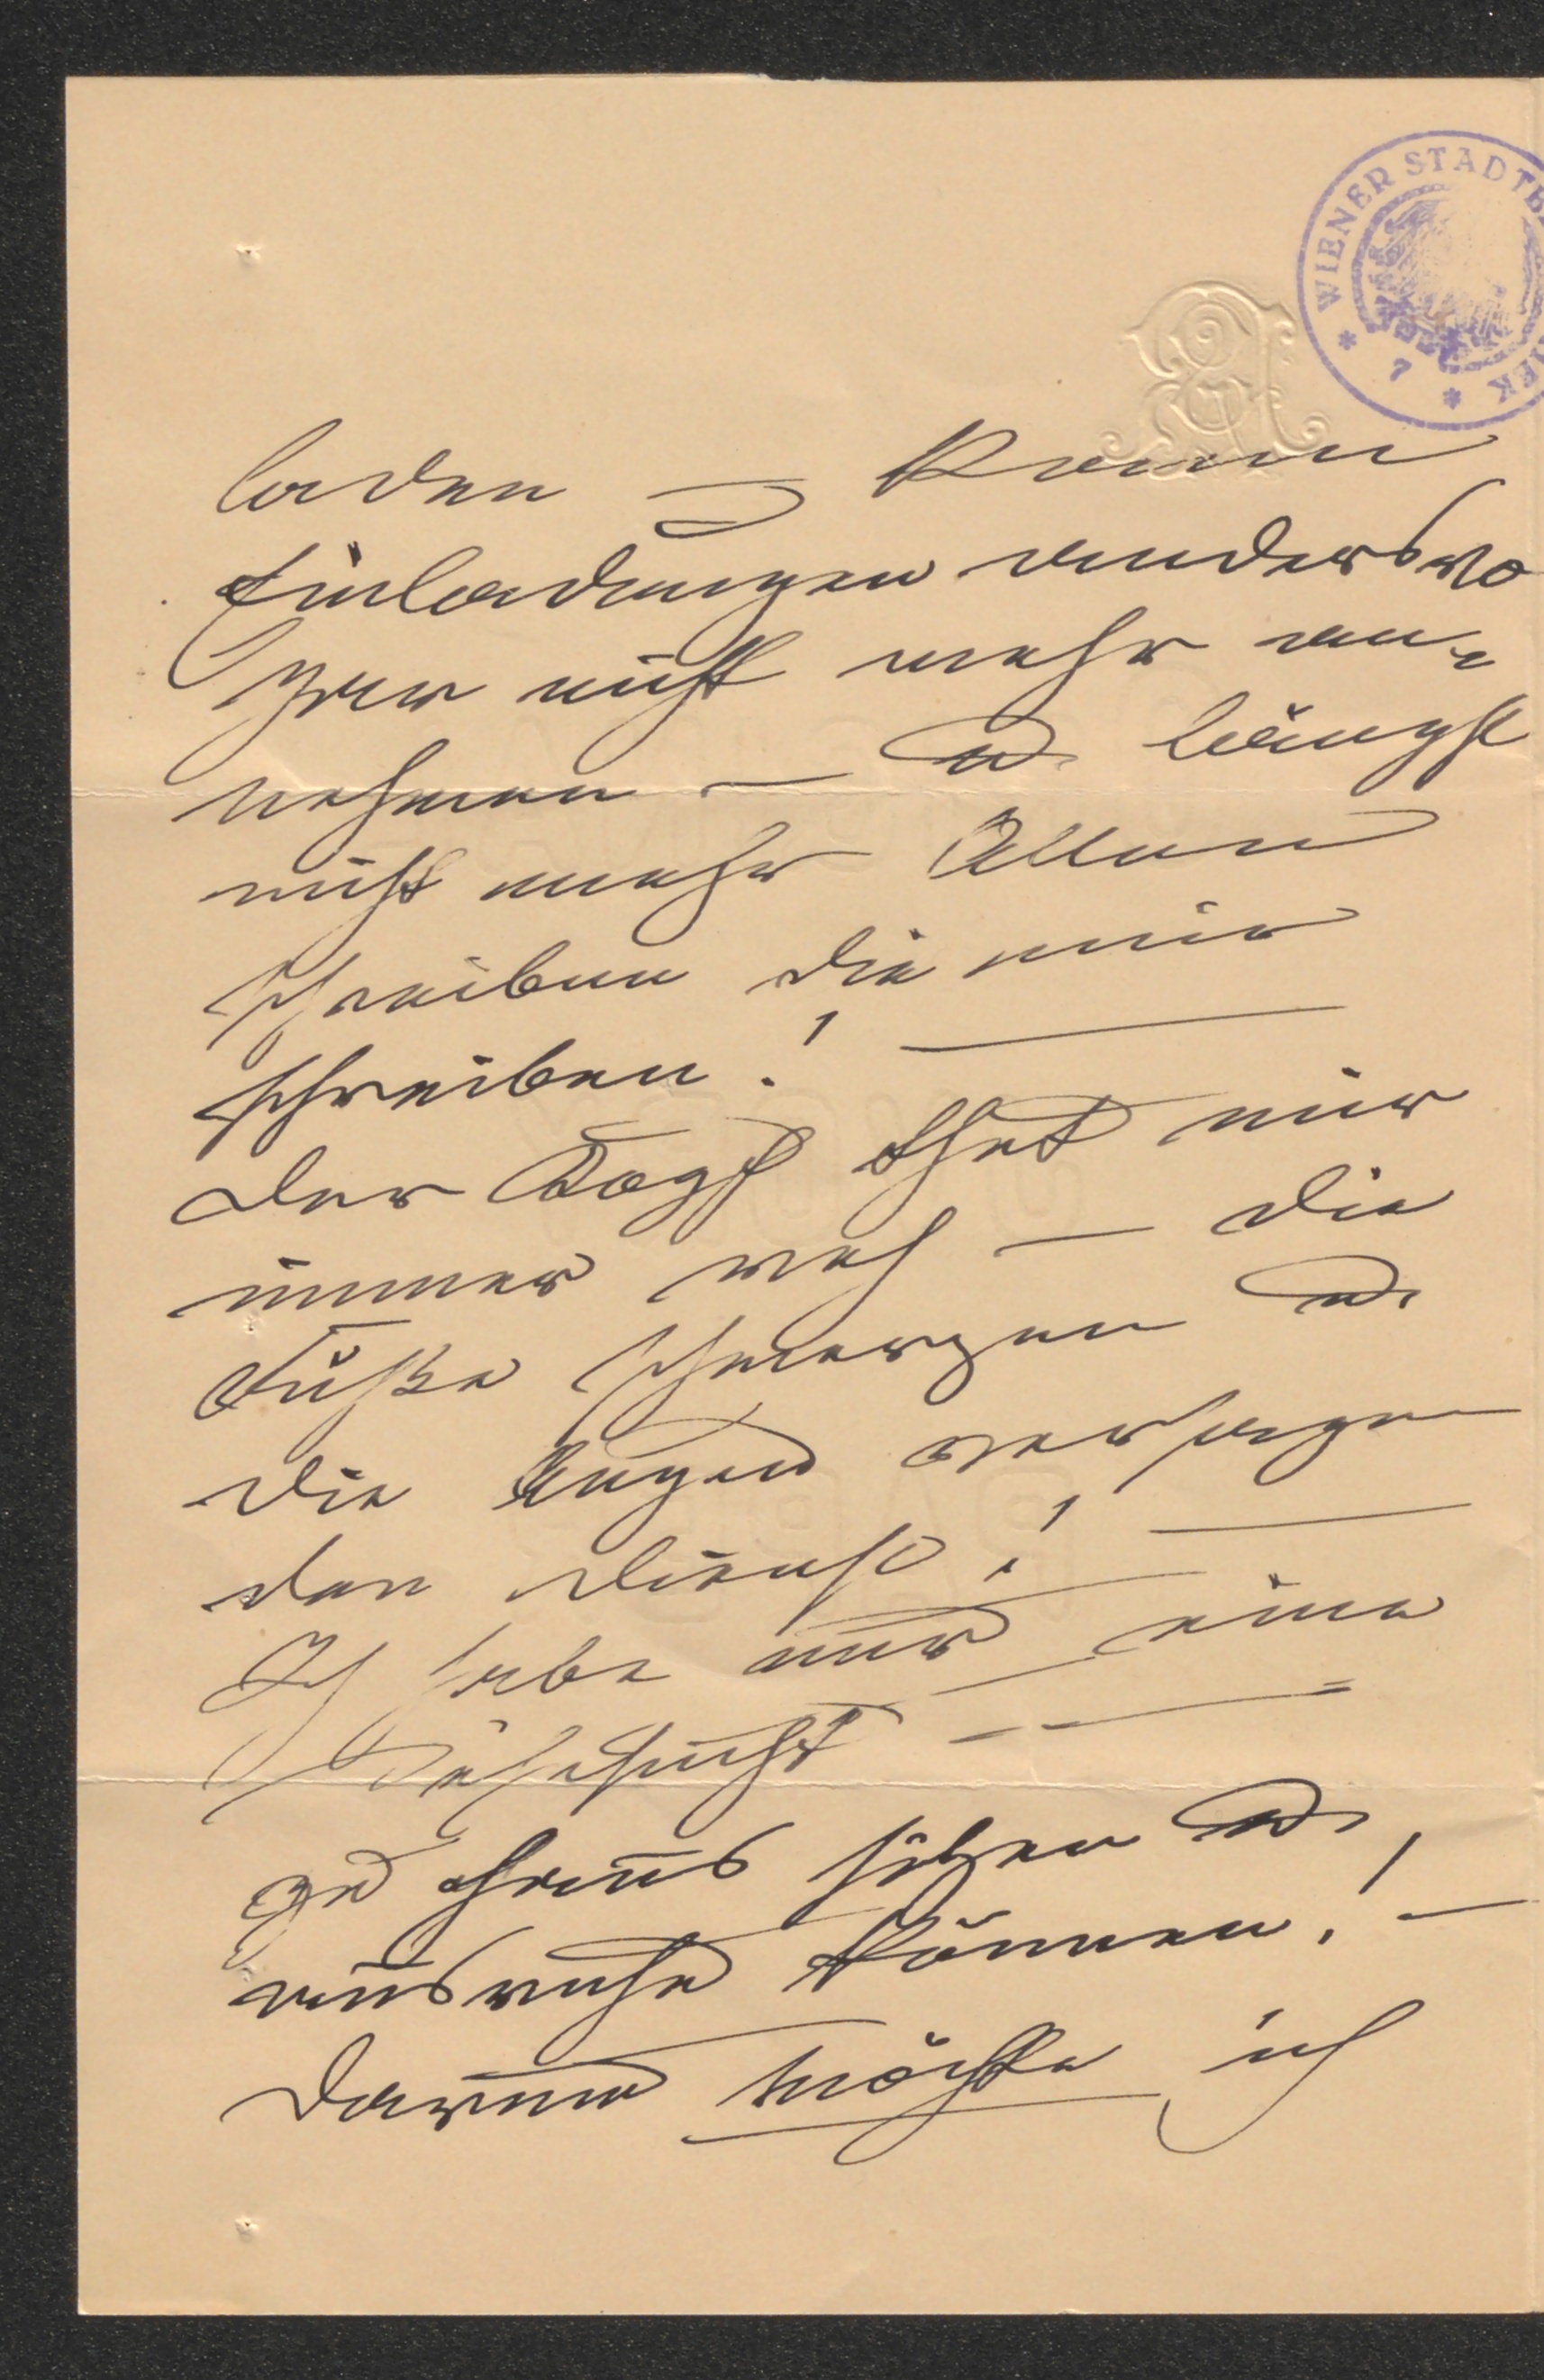 WIENER STADTB
* 7 *
laden – kann
Einladungen anderswo
gar nicht mehr an-
nehmen – u. längst
nicht mehr Allen
schreiben die mir
schreiben! –
Der Kopf thut mir
immer weh – die
Füße schmerzen u.
die Augen versagen
den Dienst! –
Ich habe nur eine
Sehnsucht – –
zu Haus sitzen u.
ausruhn können! –
Darum möchte ich